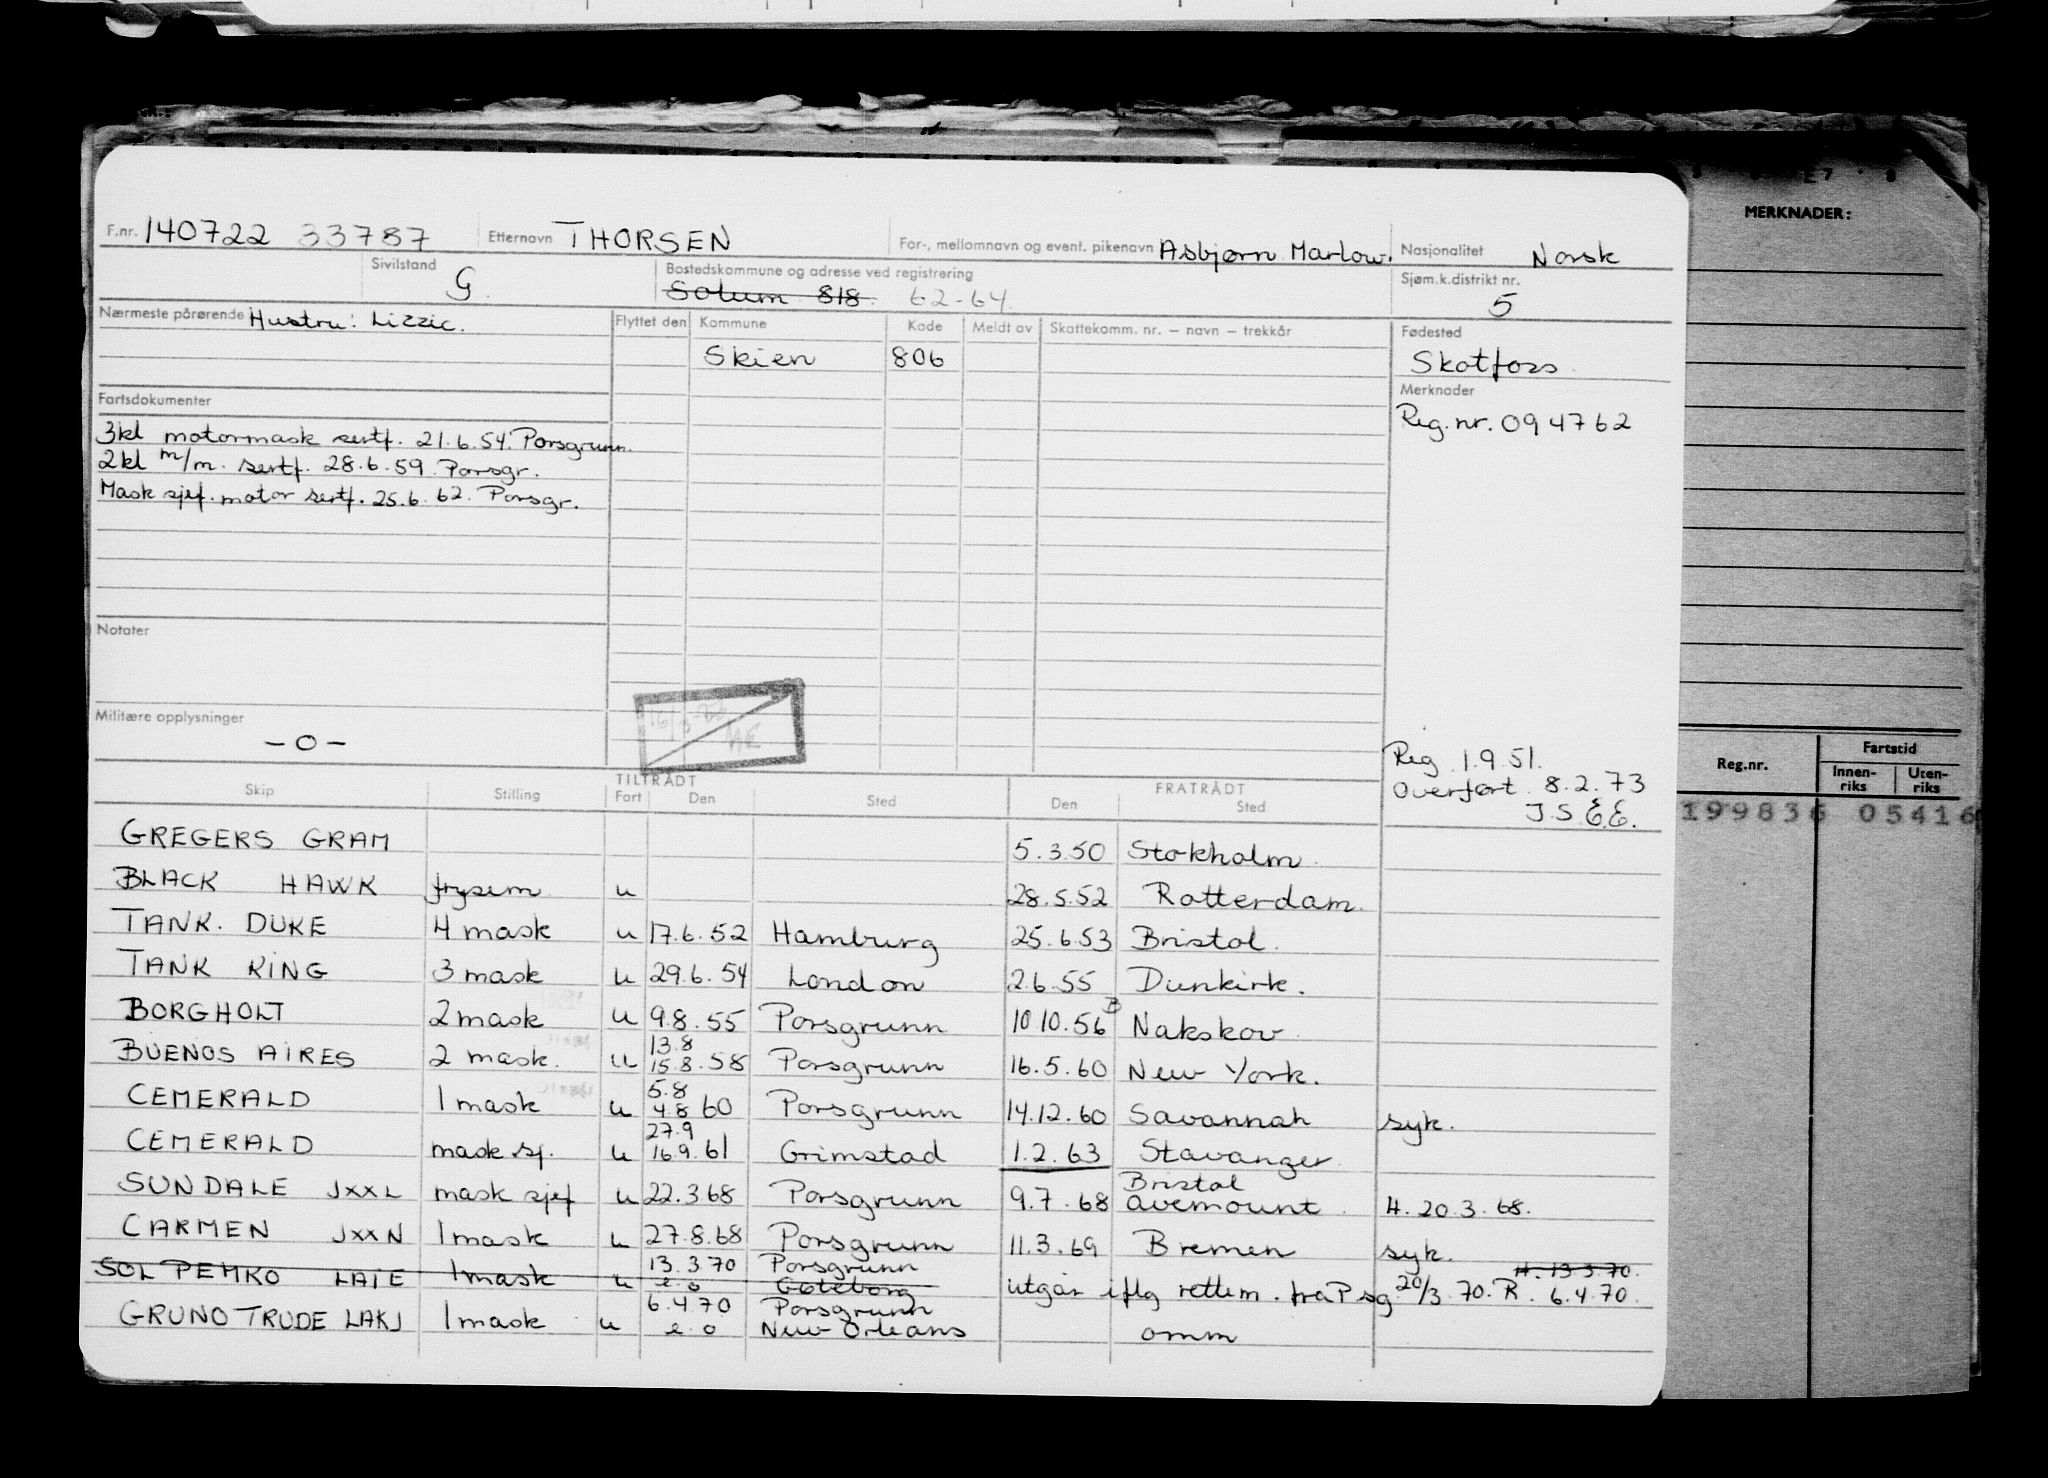 F.nr. 140722 33787 Etternavn THORSEN For-, mellomnavn og event. pikenavn Asbjørn Marlow. Nasjonalitet Norsk
Sivilstand G Bostedskommune og adresse ved registrering Solum 818. 62-64. Sjøm.k.distrikt nr. 5
Nærmeste pårørende Hustru: Lizzie. Flyttet den Kommune Kode Meldt av Skattekomm. nr. – navn – trekkår Fødested
Skien 806 Skotfoss
Fartsdokumenter Merknader
Reg.nr. 094762
3kl motormask sertf. 21.6.54. Porsgrunn.
2kl m/m. sertf. 28.6.59. Porsgr.
Mask sjef. motor sertf. 25.6.62. Porsgr.
Notater
Militære opplysninger
-0-
Reg. 1.9.51.
Overført. 8.2.73
J.S. E.E.
Skip Stilling TILTRÅDT Fart Den Sted FRATRÅDT Den Sted
GREGERS GRAM 5.3.50 Stokholm.
BLACK HAWK frysem u 28.5.52 Rotterdam.
TANK. DUKE 4 mask u 17.6.52 Hamburg 25.6.53 Bristol.
TANK KING 3 mask u 29.6.54 London 2.6.55 Dunkirk.
BORGHOLT 2 mask u 9.8.55 Porsgrunn 10.10.56 B Nakskov
BUENOS AIRES 2 mask. u 13.8 15.8.58 Porsgrunn 16.5.60 New York.
CEMERALD 1 mask u 5.8 4.8 60 Porsgrunn 14.12.60 Savannah syk.
CEMERALD mask sj. u 27.9 16.9.61 Grimstad 1.2.63 Stavanger
SUNDALE JXXL mask sjef u 22.3.68 Porsgrunn 9.7.68 Bristol avemount. H. 20.3.68.
CARMEN JXXN 1 mask u 27.8.68 Porsgrunn 11.3.69 Bremen syk.
SOL PEMKO LAIE 1 mask u 13.3.70 e.o Porsgrunn Gøteborg utgår iflg rettem. fra Psg 20/3.70. R. H. 13.3.70. 6.4.70.
GRUNO TRUDE LAKJ 1 mask u 6.4.70 e.o Porsgrunn New Orleans omm
MERKNADER:
Reg.nr. Fartstid
Innen-riks Uten-riks
199836 05416